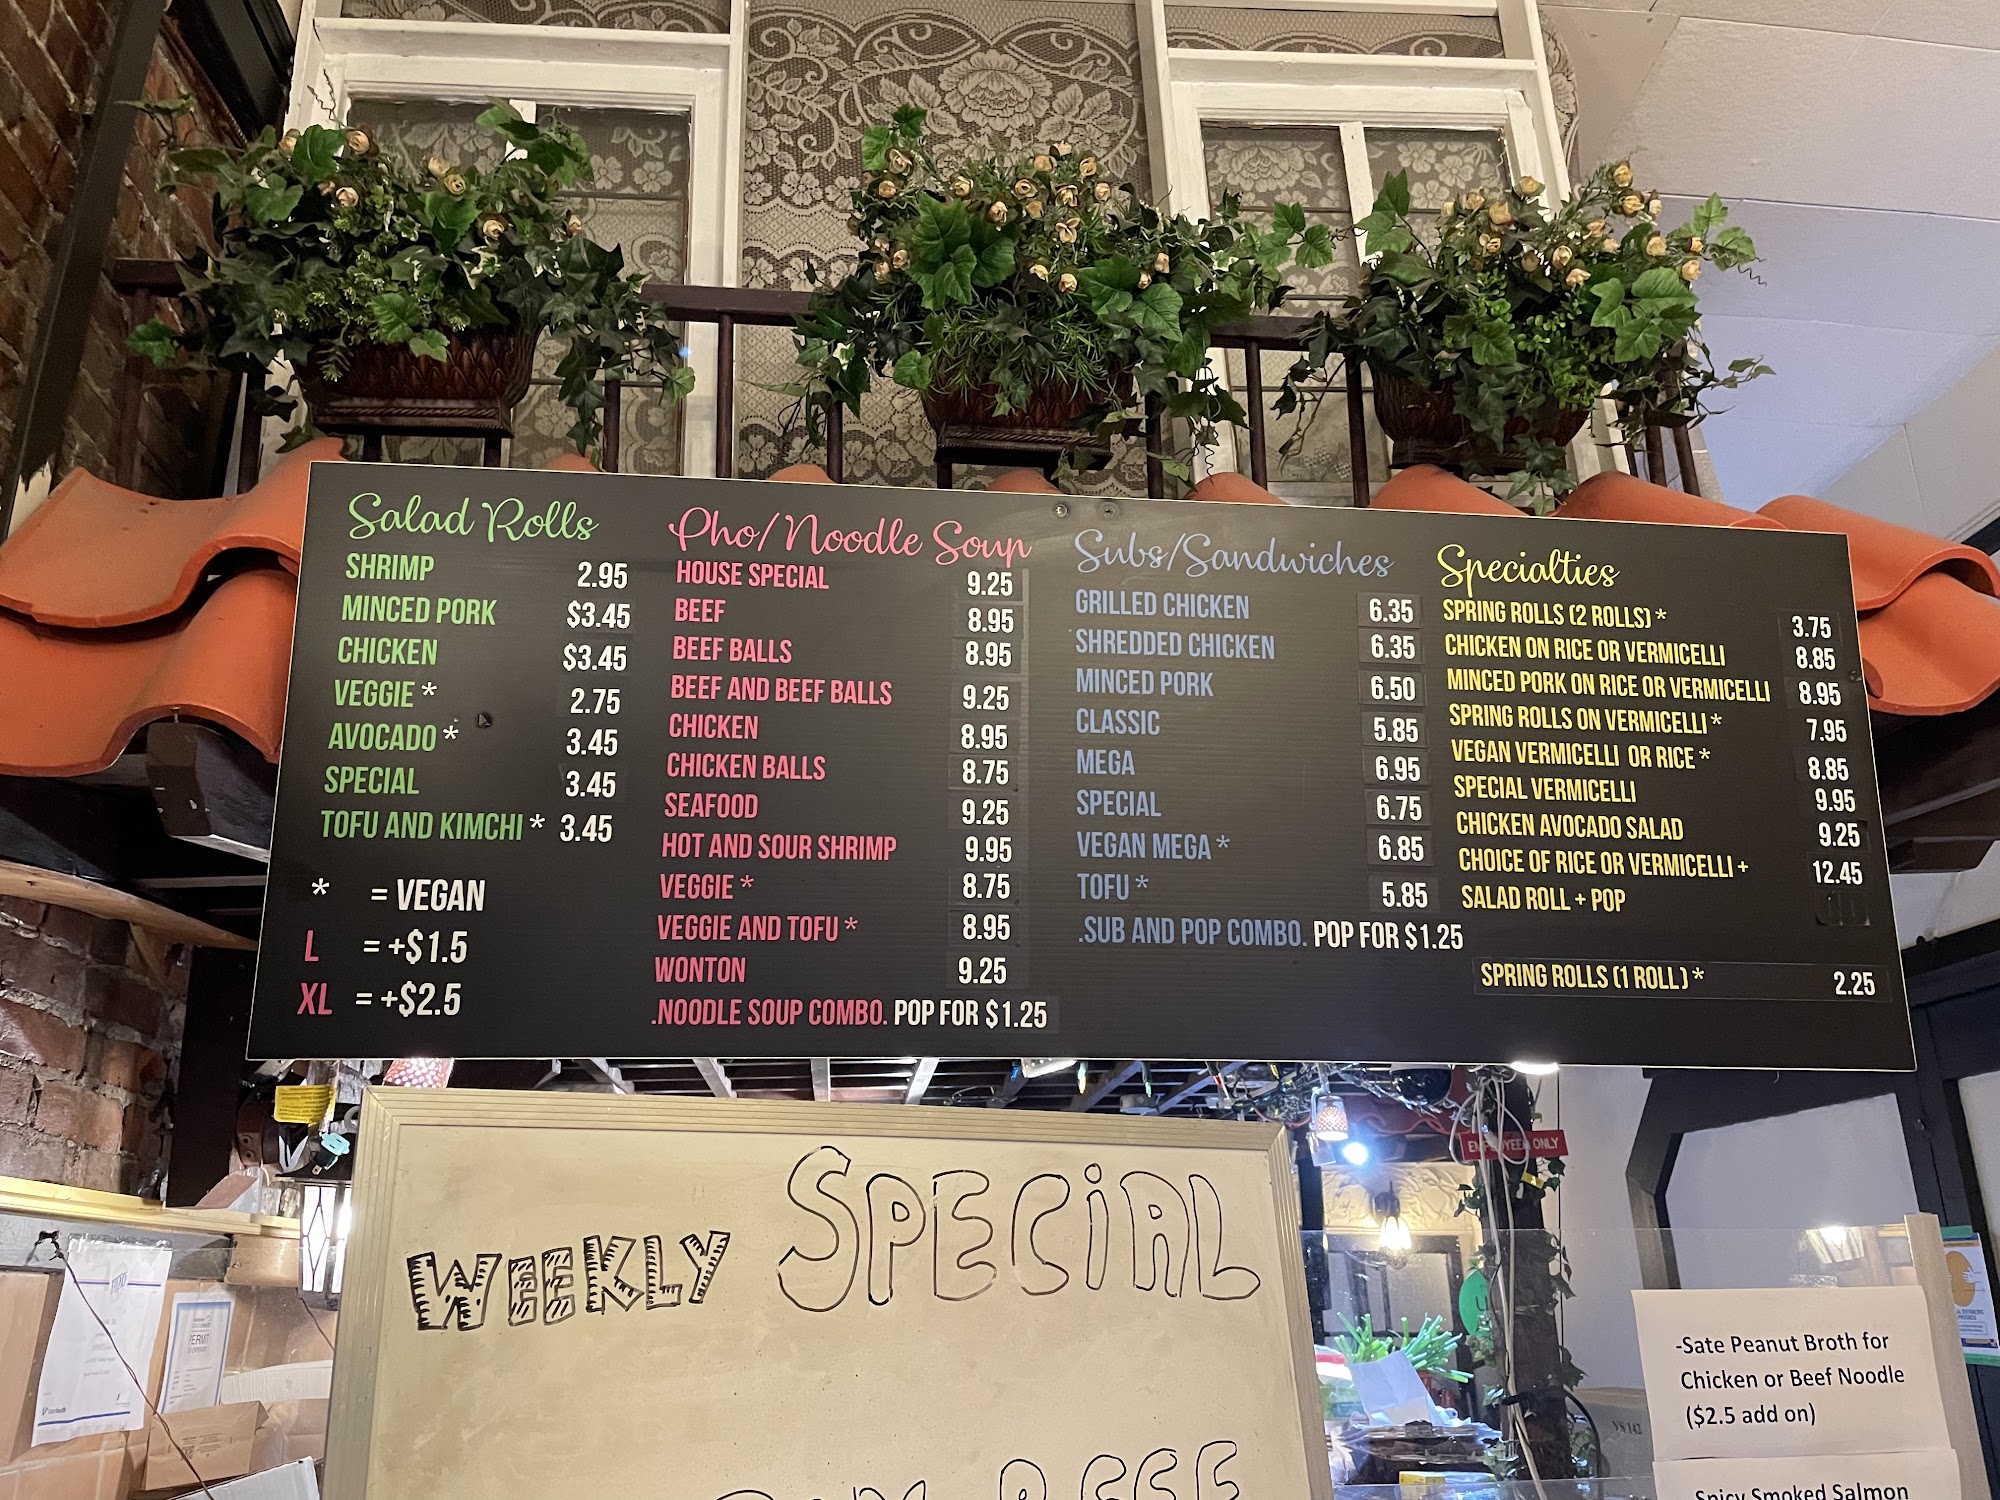 Salad Rolls
SHRIMP 2.95
MINCED PORK $3.45
CHICKEN $3.45
VEGGIE * 2.75
AVOCADO * 3.45
SPECIAL 3.45
TOFU AND KIMCHI * 3.45
* = VEGAN
L = +$1.5
XL = +$2.5
Pho/Noodle Soup
HOUSE SPECIAL 9.25
BEEF 8.95
BEEF BALLS 8.95
BEEF AND BEEF BALLS 9.25
CHICKEN 8.95
CHICKEN BALLS 8.75
SEAFOOD 9.25
HOT AND SOUR SHRIMP 9.95
VEGGIE * 8.75
VEGGIE AND TOFU * 8.95
WONTON 9.25
.NOODLE SOUP COMBO. POP FOR $1.25
Subs/Sandwiches
GRILLED CHICKEN 6.35
SHREDDED CHICKEN 6.35
MINCED PORK 6.50
CLASSIC 5.85
MEGA 6.95
SPECIAL 6.75
VEGAN MEGA * 6.85
TOFU * 5.85
.SUB AND POP COMBO. POP FOR $1.25
Specialties
SPRING ROLLS (2 ROLLS) * 3.75
CHICKEN ON RICE OR VERMICELLI 8.85
MINCED PORK ON RICE OR VERMICELLI 8.95
SPRING ROLLS ON VERMICELLI * 7.95
VEGAN VERMICELLI OR RICE * 8.85
SPECIAL VERMICELLI 9.95
CHICKEN AVOCADO SALAD 9.25
CHOICE OF RICE OR VERMICELLI + 12.45
SALAD ROLL + POP
SPRING ROLLS (1 ROLL) * 2.25
EMPLOYEES ONLY
WEEKLY SPECiAL
PERMIT
-Sate Peanut Broth for
Chicken or Beef Noodle
($2.5 add on)
Spicy Smoked Salmon